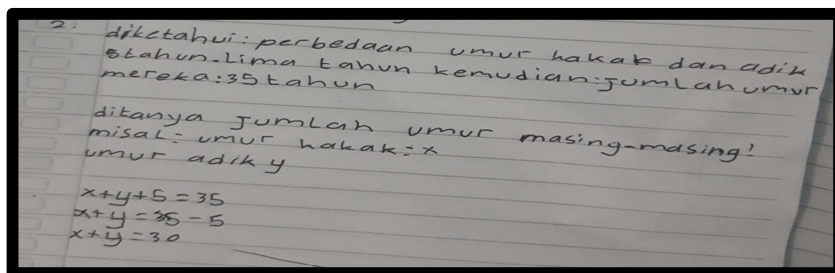 2. diketahui: perbedaan umur kakak dan adik
5tahun. Lima tahun kemudian: jumlah umur
mereka: 35 tahun
ditanya jumlah umur masing-masing!
misal: umur kakak: x
umur adik y
x+y+5 = 35
x+y = 35 - 5
x+y = 30